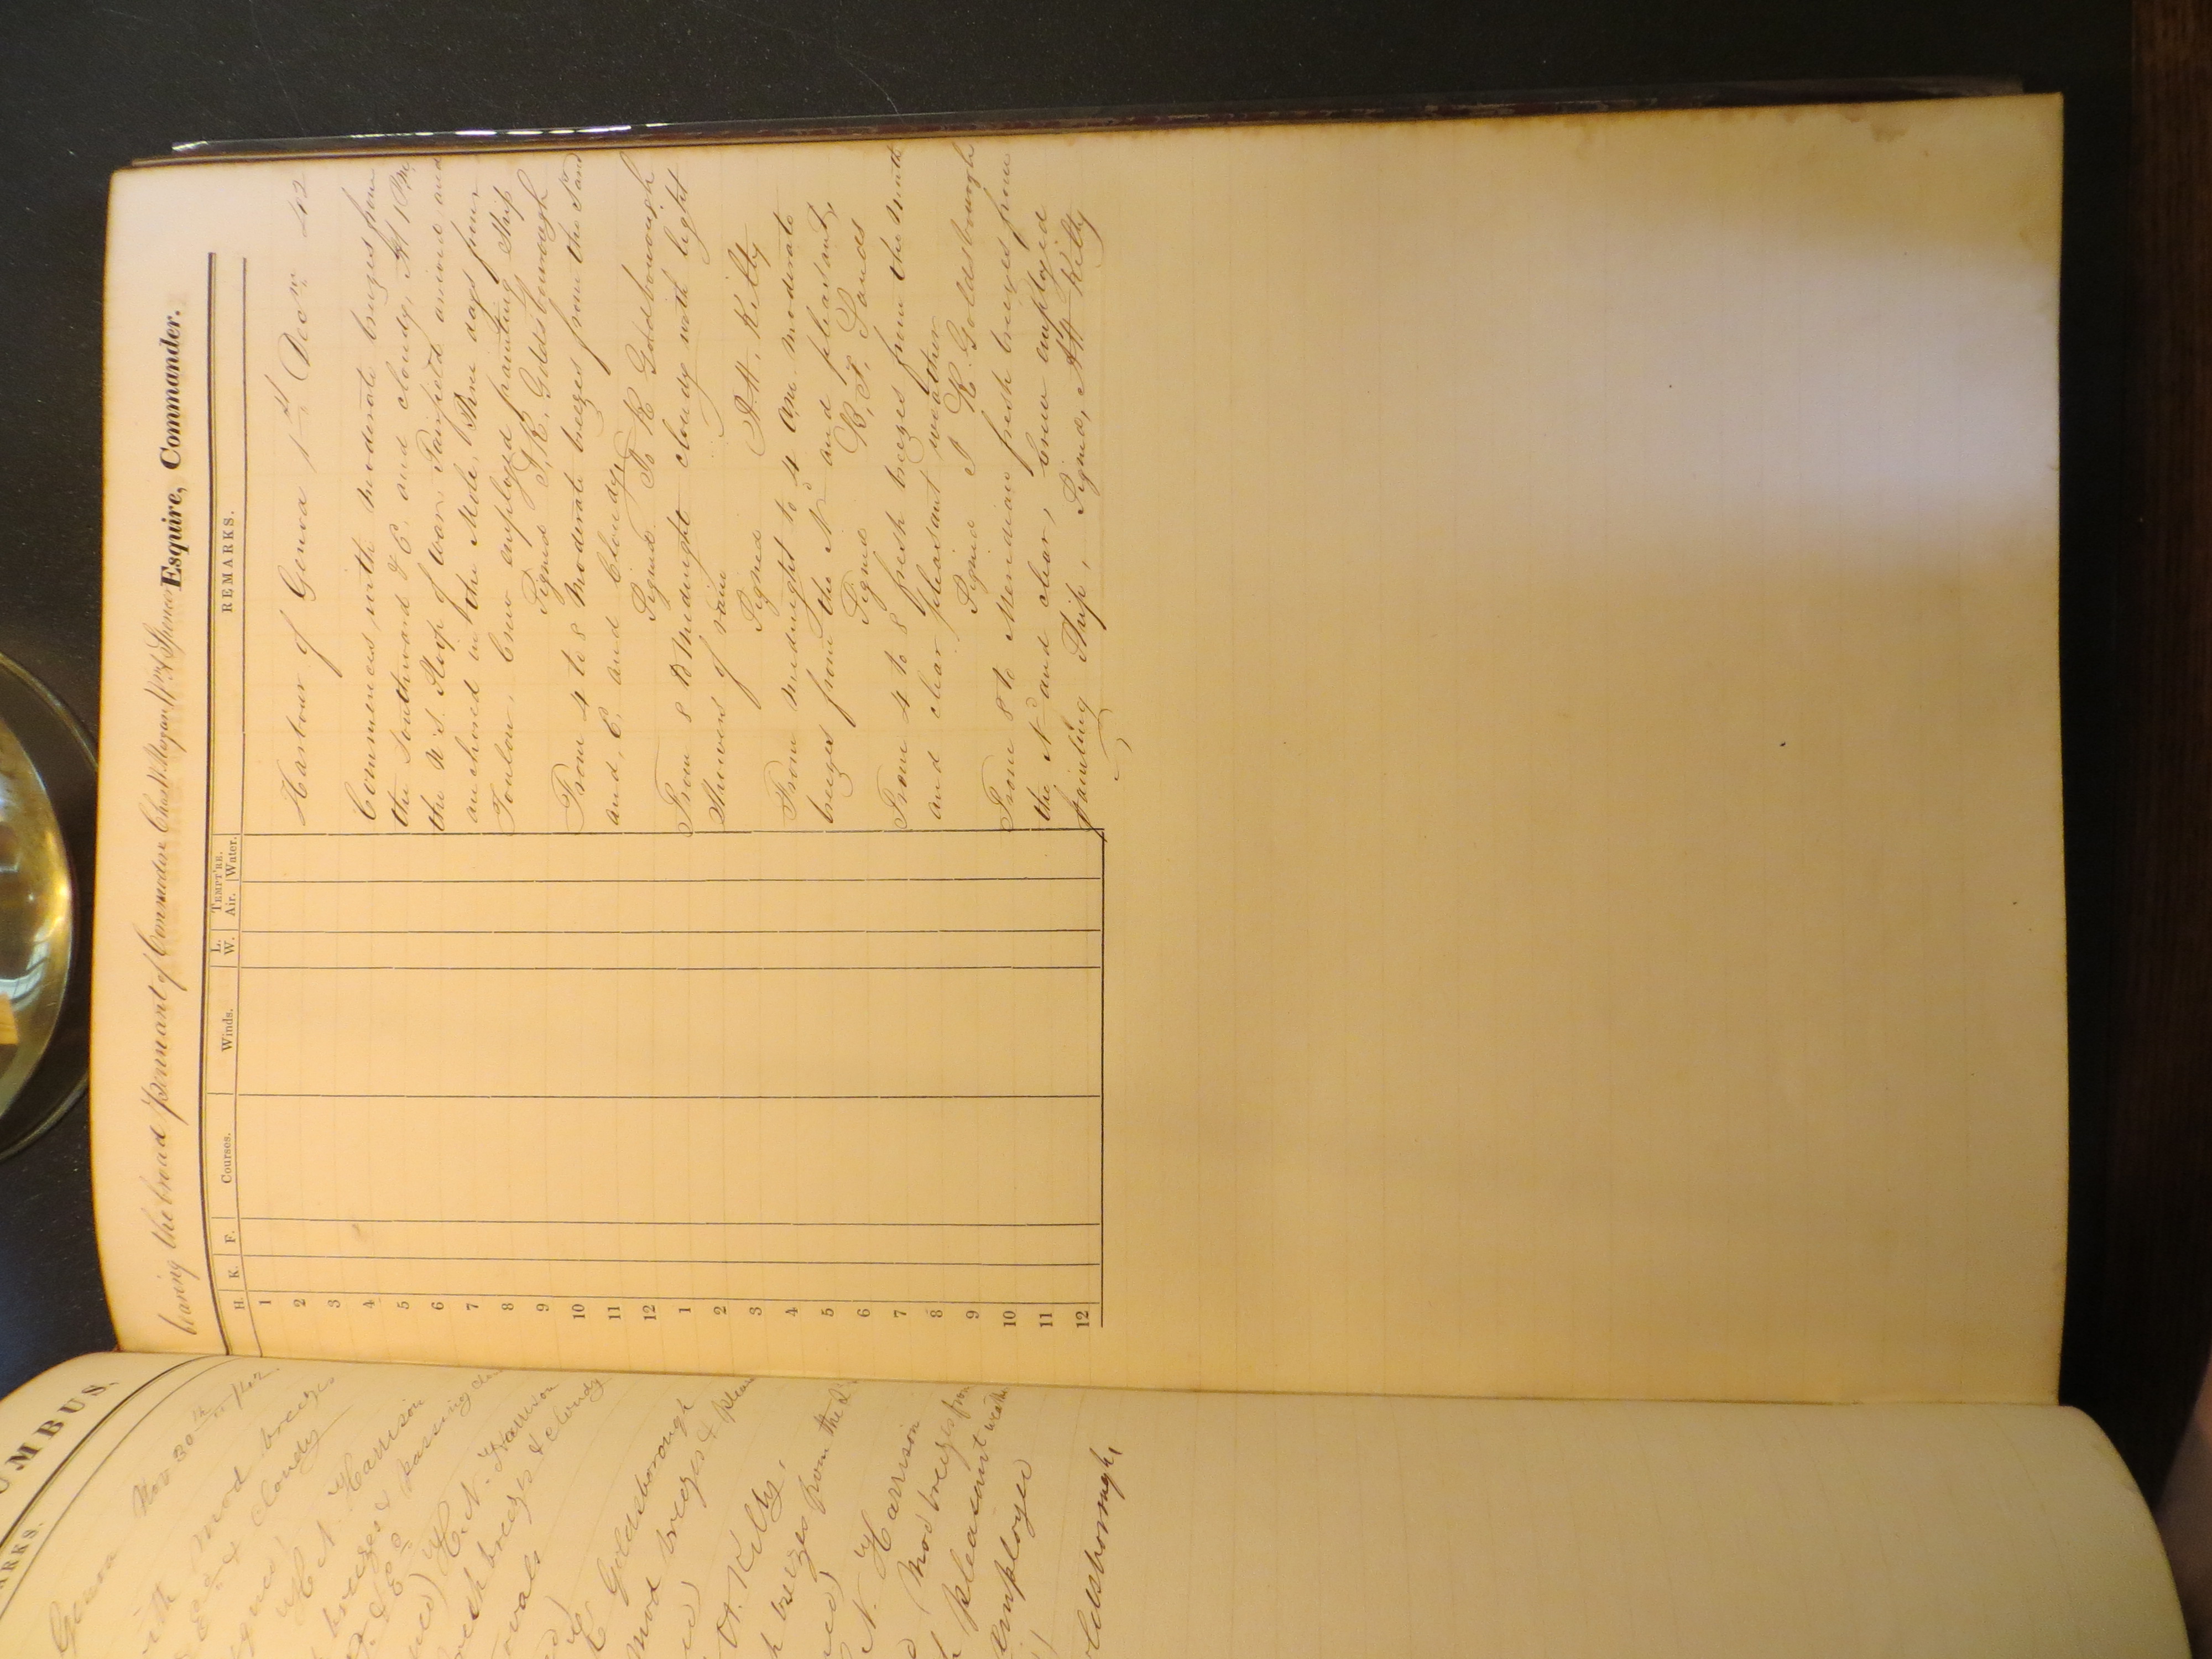 UMBUS.
RKS.
Genoa Nov 30th 1842
with mod breezes
& cloudy
H. N. Harrison
breezes & passing
H. N. Harrison
fresh breezes & cloudy
Goldsborough
mod breezes &
A. H. Kilty,
breezes from the
N. Harrison
Mod breezes from
pleasant weather
employed
oldsborough,
bearing the broad pennant of Commodore Chas W. Morgan Wm A Spencer Esquire, Commander.
H. K. F. Courses. Winds. L. W. TEMPT'RE. Air. Water. REMARKS.
1
2
3
4
5
6
7
8
9
10
11
12
1
2
3
4
5
6
7
8
9
10
11
12
Harbour of Genoa 1st Decr 42
Commences with moderate breezes from
the Southward & E. and cloudy, At 1 P.M.
the U.S. Sloop of War Fairfield arrived and
anchored in the Mole, Nine days from
Toulon, Crew employed painting Ship
Signed J, R, Goldsborough
From 4 to 8 Moderate breezes from the So and
and, E, and Cloudy
Signed Jo R Goldsborough
From 8 to Midnight cloudy with light
Showers of rain
Signed A. H. Kilty
From Midnight to 4 am moderate
breezes from the Nd and pleasant,
Signed B, F, Sands
From 4 to 8 fresh breezes from the North
and clear pleasant weather
Signed J R. Goldsborough
From 8 to Meridian fresh breezes from
the Nd and clear, Crew employed
painting Ship, Signed, A H Kilty